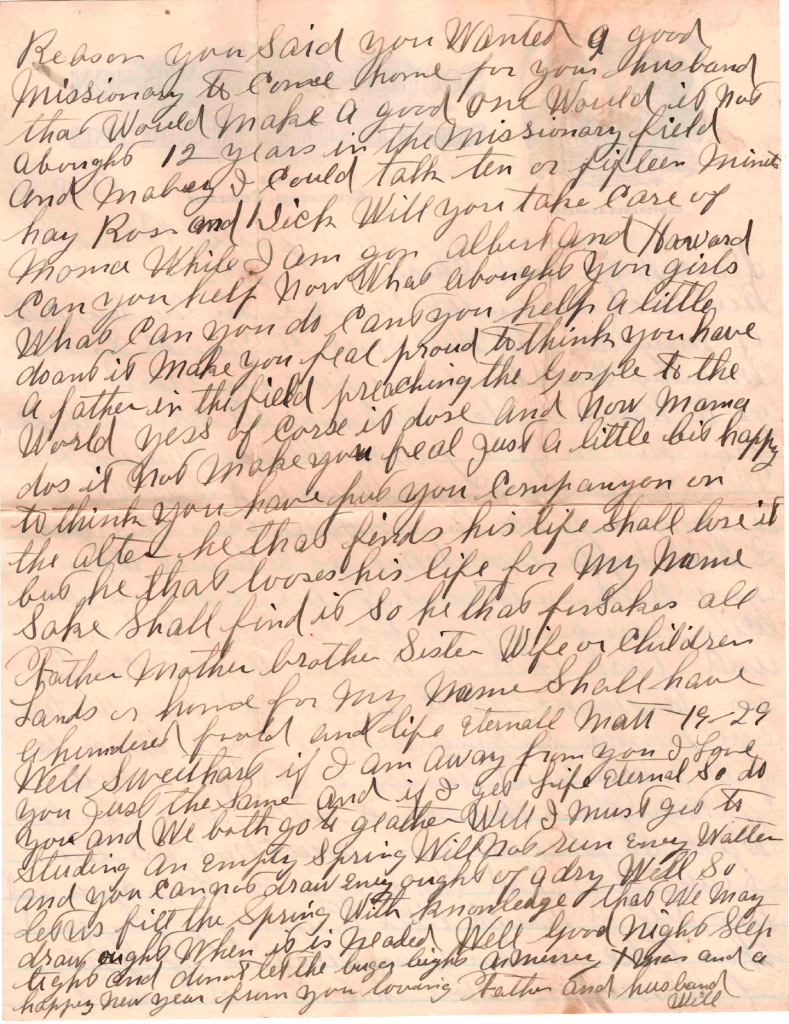 Reason you said you Wanted a good
Missionary to Come home for your husband
that Would Make a good one Would it not
abought 12 years in the Missionary field
And Mabey I Could talk ten or fifteen Minits
hay Ross and Dick Will you take Care of
Moma While I am gon albert and Howard
Can you help Now What abought you girls
What Can you do Cant you help a little
doant it Make you feal proud to think you have
a father in the field preaching the Gosple to the
World yess of Corse it dose and Now Mama
dos it Not Make you feal Just a little bit happy
to think you have put you Companyon on
the alter he that finds his life shall lose it
but he that looses his life for My Name
Sake Shall find it So he that forsakes all
Father Mother brother Sister Wife or Children
Lands or home for My Name Shall have
a hundered foald and life Eternall Matt 19-29
Well Sweethart if I am away from you I Love
you Just the Same And if I get Life Eternal So do
you and We both go to geather Well I Must get to
Studing An Empty Spring Will Not run Eney Watter
and you Cannot draw Eney ought of a dry Well So
let us fill the Spring With Knowledge that We May
draw ought When it is Neaded Well Good Night Slep
tight and donot let the buges bight a merrey Xmas and a
happey New year from you loveing Father and husband
Will